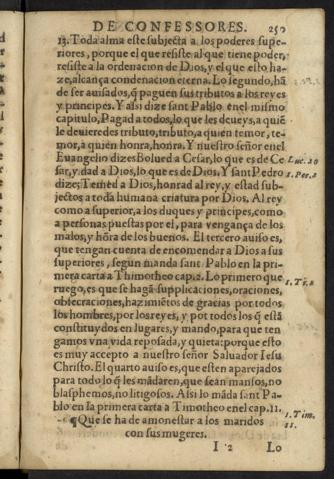 DE CONFESSORES. 250
13. Toda alma este subjecta a los poderes supe-
riores, porque el que resiste al que tiene poder,
resiste a la ordenacion de Dios, y el que esto, ha-
ze, alcança condenacion eterna. Lo segundo, hã
de ser auisados, q̃ paguen sus tributos a los reyes
y principes. Y assi dize sant Pablo en el mismo
capitulo, Pagad a todos, lo que les deueys, a quiẽ
le deuieredes tributo, tributo, a quien temor, te-
mor, a quien honra, honra. Y nuestro señor en el
Euangelio dizes Bolued a Cesar, lo que es de Ce Luc. 20
sar, y dad a Dios, lo que es de Dios. Y sant Pedro 1. Pet. 2
dize; Temed a Dios, honrad al rey, y estad sub-
jectos a toda humana criatura por Dios. Al rey
como a superior, a los duques y principes, como
a personas puestas por el, para vengança de los
malos, y hõra de los buenos. El tercero auiso es,
que tengan cuenta de encomendar a Dios a sus
superiores, segun manda sant Pablo en la pri-
mera carta a Thimotheo cap. 2. Lo primero que 1. Ti. 2
ruego, es que se hagã supplicaciones, oraciones,
obsecraciones, hazimiẽtos de gracias por todos
los hombres, por los reyes, y pot todos los q̃ estã
constituydos en lugares, y mando, para que ten
gamos vna vida reposada, y quieta: porque esto
es muy accepto a nuestro señor Saluador Iesu
Christo. El quarto auiso es, que esten aparejados
para todo lo q̃ les mãdaren, que sean mansos, no
blasphemos, no litigosos. Assi lo mãda sant Pa-
blo en la primera carta a Timotheo en el cap. 11. 1. Tim.
¶Que se ha de amonestar a los maridos 11.
con sus mugeres.
I i 2 Lo